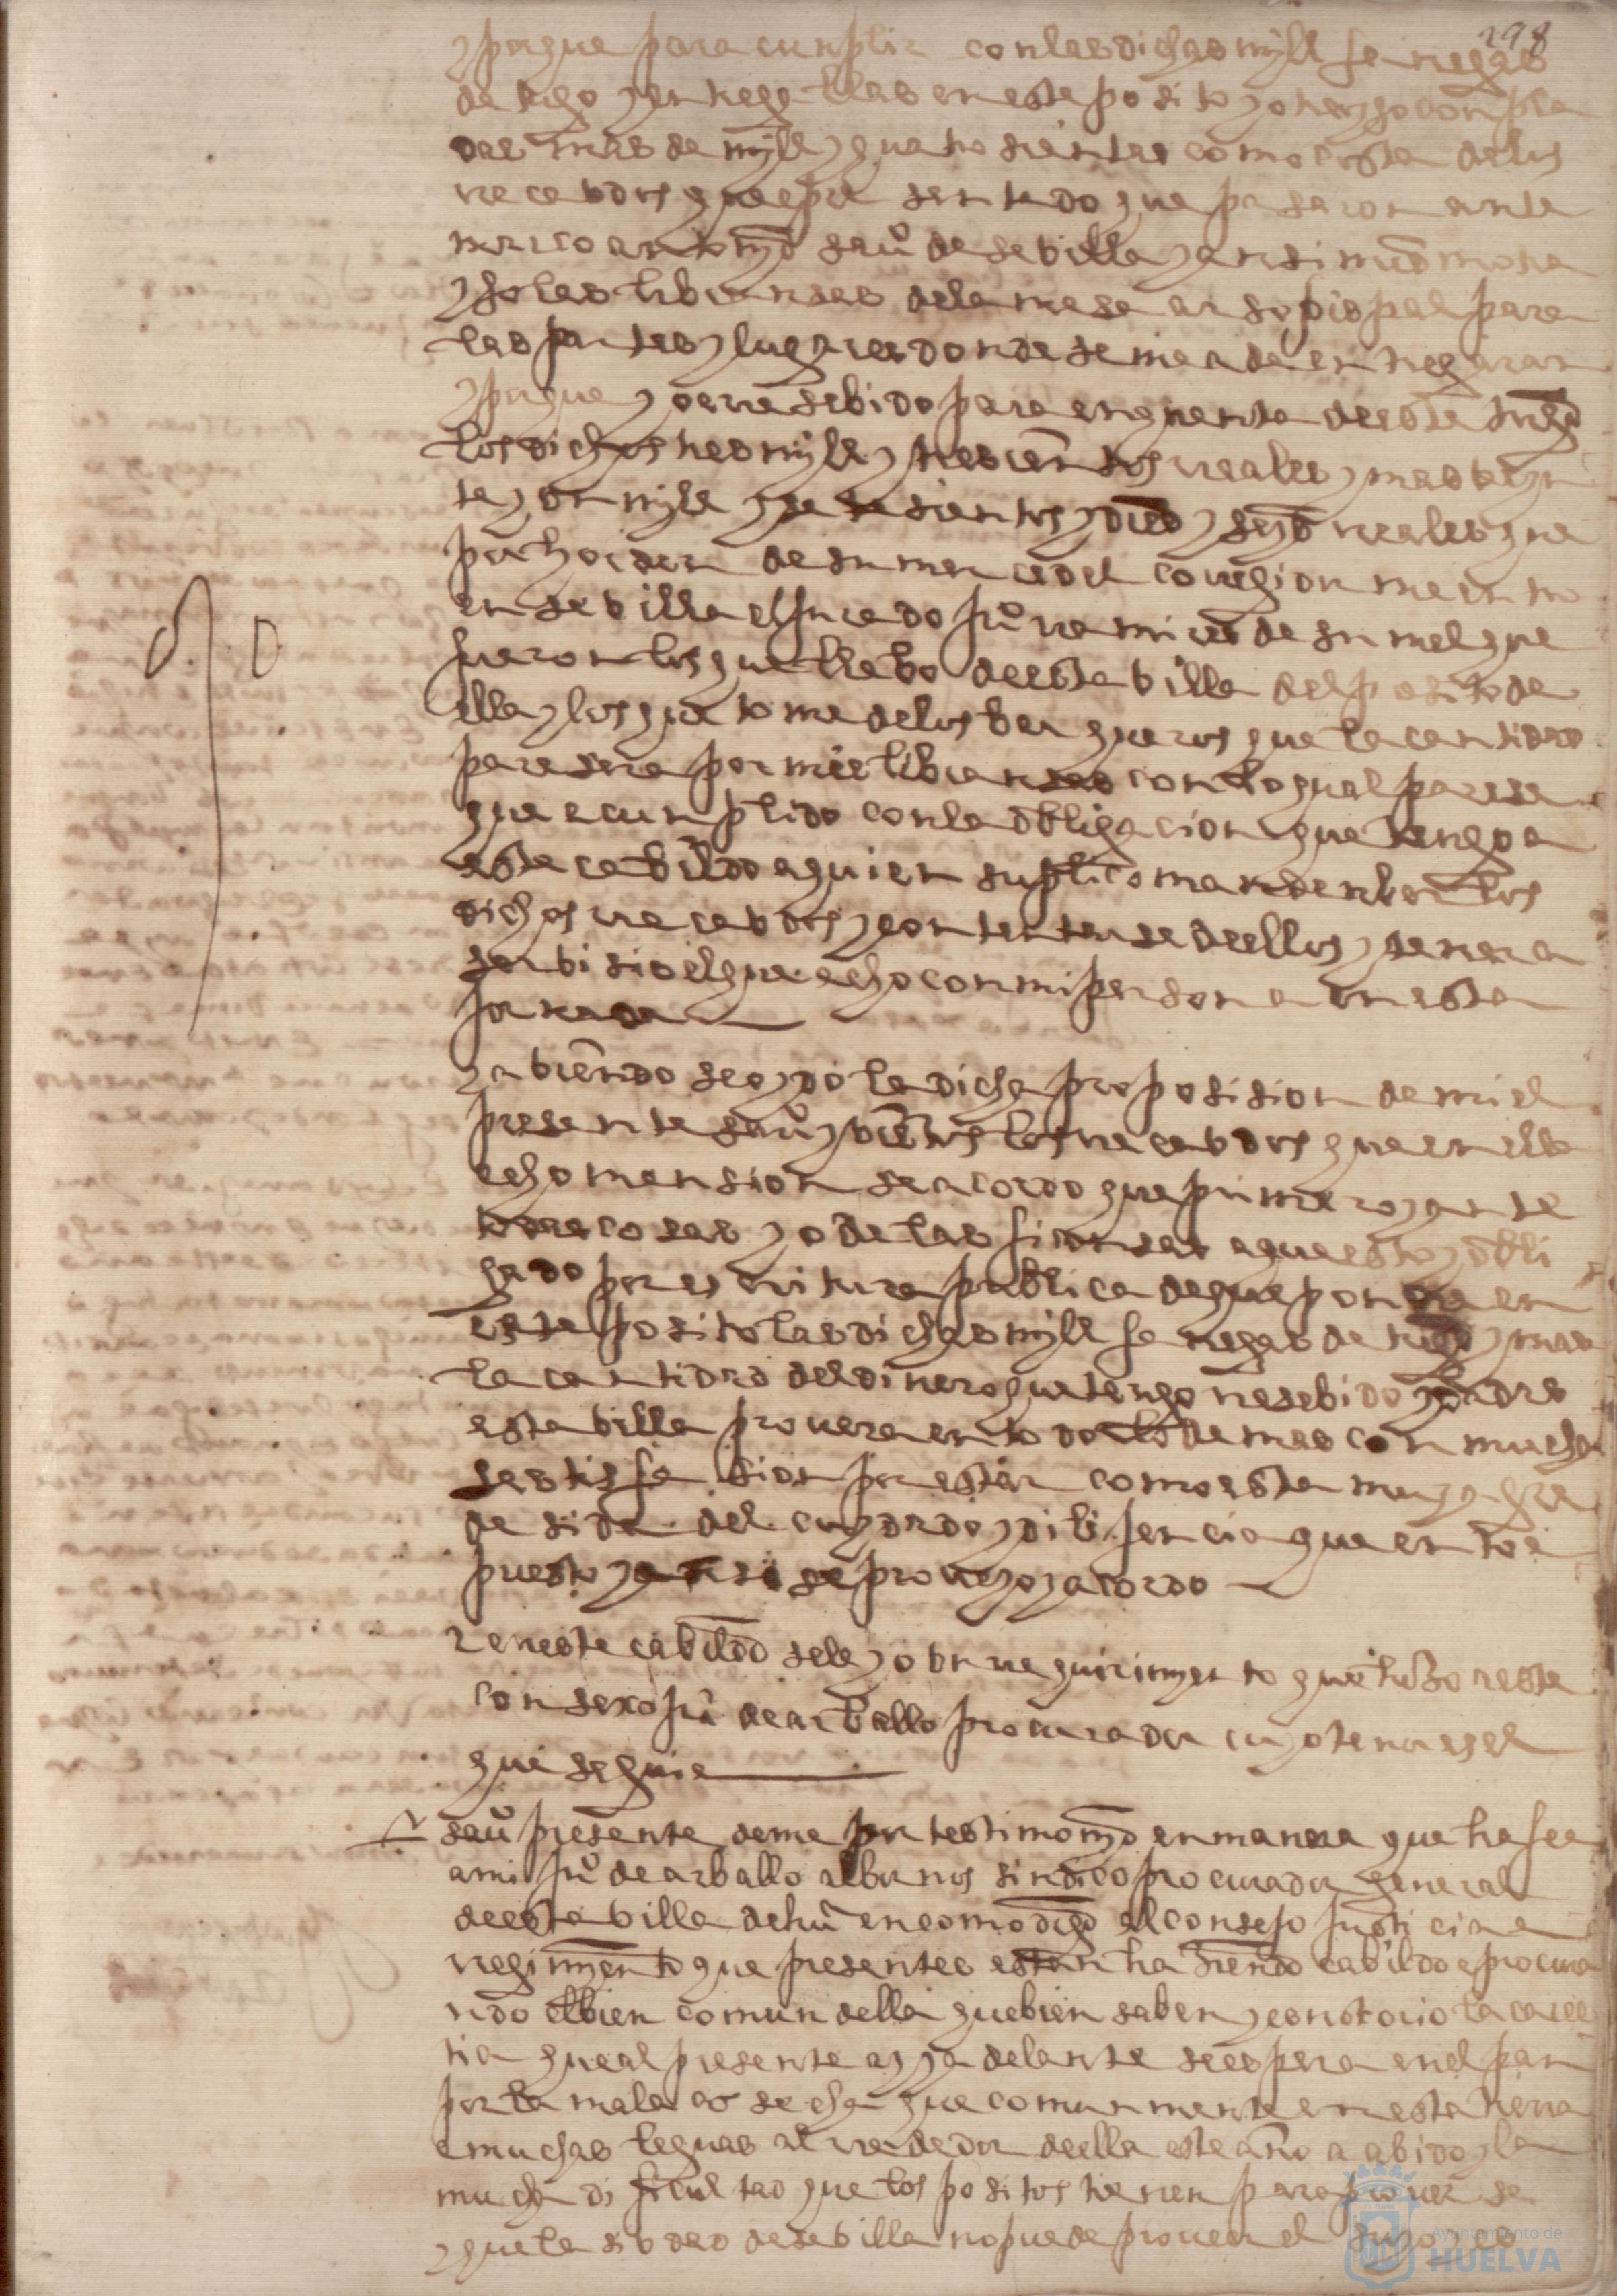 298
y porque para cunplir con las dichas myll fanegas
de trigo y entregallas en este posito yo tengo conpra
das mas de myll y quatrosientas como costa de los
recevdos que e presentado que pasaron ante
marco antonyo sno de sevilla y ansimismo
y so las libransas de la mesa arsopispal para
las partes y lugares donde se me a de entregaran
y porque yo e resebido para en quenta de este trigo
los dichos tres myll y tresientos reales y mas veyn
te y un myll y setesientos y dies y seys reales que
por horden de su merced el coregidor me entrego
en sevilla el jurado juo ramires de su mel que
fueron los que llebo de esta villa del posito de
ella y los que tome de los bargueros que la cantidad
paresera por mis libransas con lo qual parese
que e cunplido con la obligacion que tengo a
este cabildo a quien suplico manden ber los
dichos recevdos y contentense de ellos y tener a
serbisio el que e echo con mi persona en esta
jornada
y abiendose oydo la dicha proposision de mi el
presente sno y bistos los recevdos que en ella
echo mension se acordo que primero y ante
todas cosas yo de las fiansas a que estoy obli
gado por escritura publica de que pondre en
este posito las dichas myll fanegas de trigo y mas
la cantidad del dinero que tengo resebido y dadas
esta villa provera en todo lo demas con mucha
satisfasion por estar como esta muy agra
desida del cuydado y dilijencia que en todo e
puesto y ansi se proveyo y acordo
y en este cabildo se leyo un requirimyento que hizo a este
consexo juo de arballo procurador cuyo tenor es el
que sigue
sno presente deme por testimonyo en manera que ha fee
a mi juo de arballo albornos sindico procurador general
de esta villa de hua en como digo al consejo justicia e
regimyento que presentes estan hasiendo cabildo e procura
ndo el bien comun della que bien saben y es notorio la cares
tia que al presente ay y adelante se espera en el pan
por la mala cosecha que comunmente en esta tierra
e muchas leguas alrrededor de ella este año a abido y la
mucha dificultad que los positos tienen para proverse
y que la sibdad de sevilla no puede prover el suyo
Ayuntamiento de
HUELVA